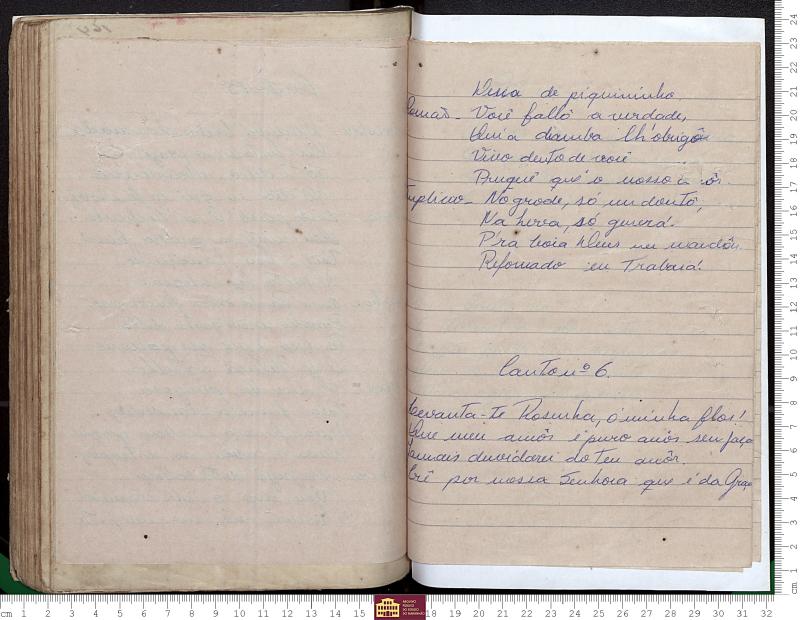 Nessa de piquininho
Você fallô a verdade,
Quiá diamba lh'obrigô
Vivo dento de você
Pruquê qué o nosso
No grode, só um doutô,
Na herva, só generá.
P'ra boia Deus me mandô
Reformado em Trabaiá!
Canto nº 6.
Levanta-te Rosinha, ó minha flôr!
Que meu amôr é puro amôr sem jaça
Jamais duvidarei do teu amôr.
Crê por nossa Senhora que é da Graça